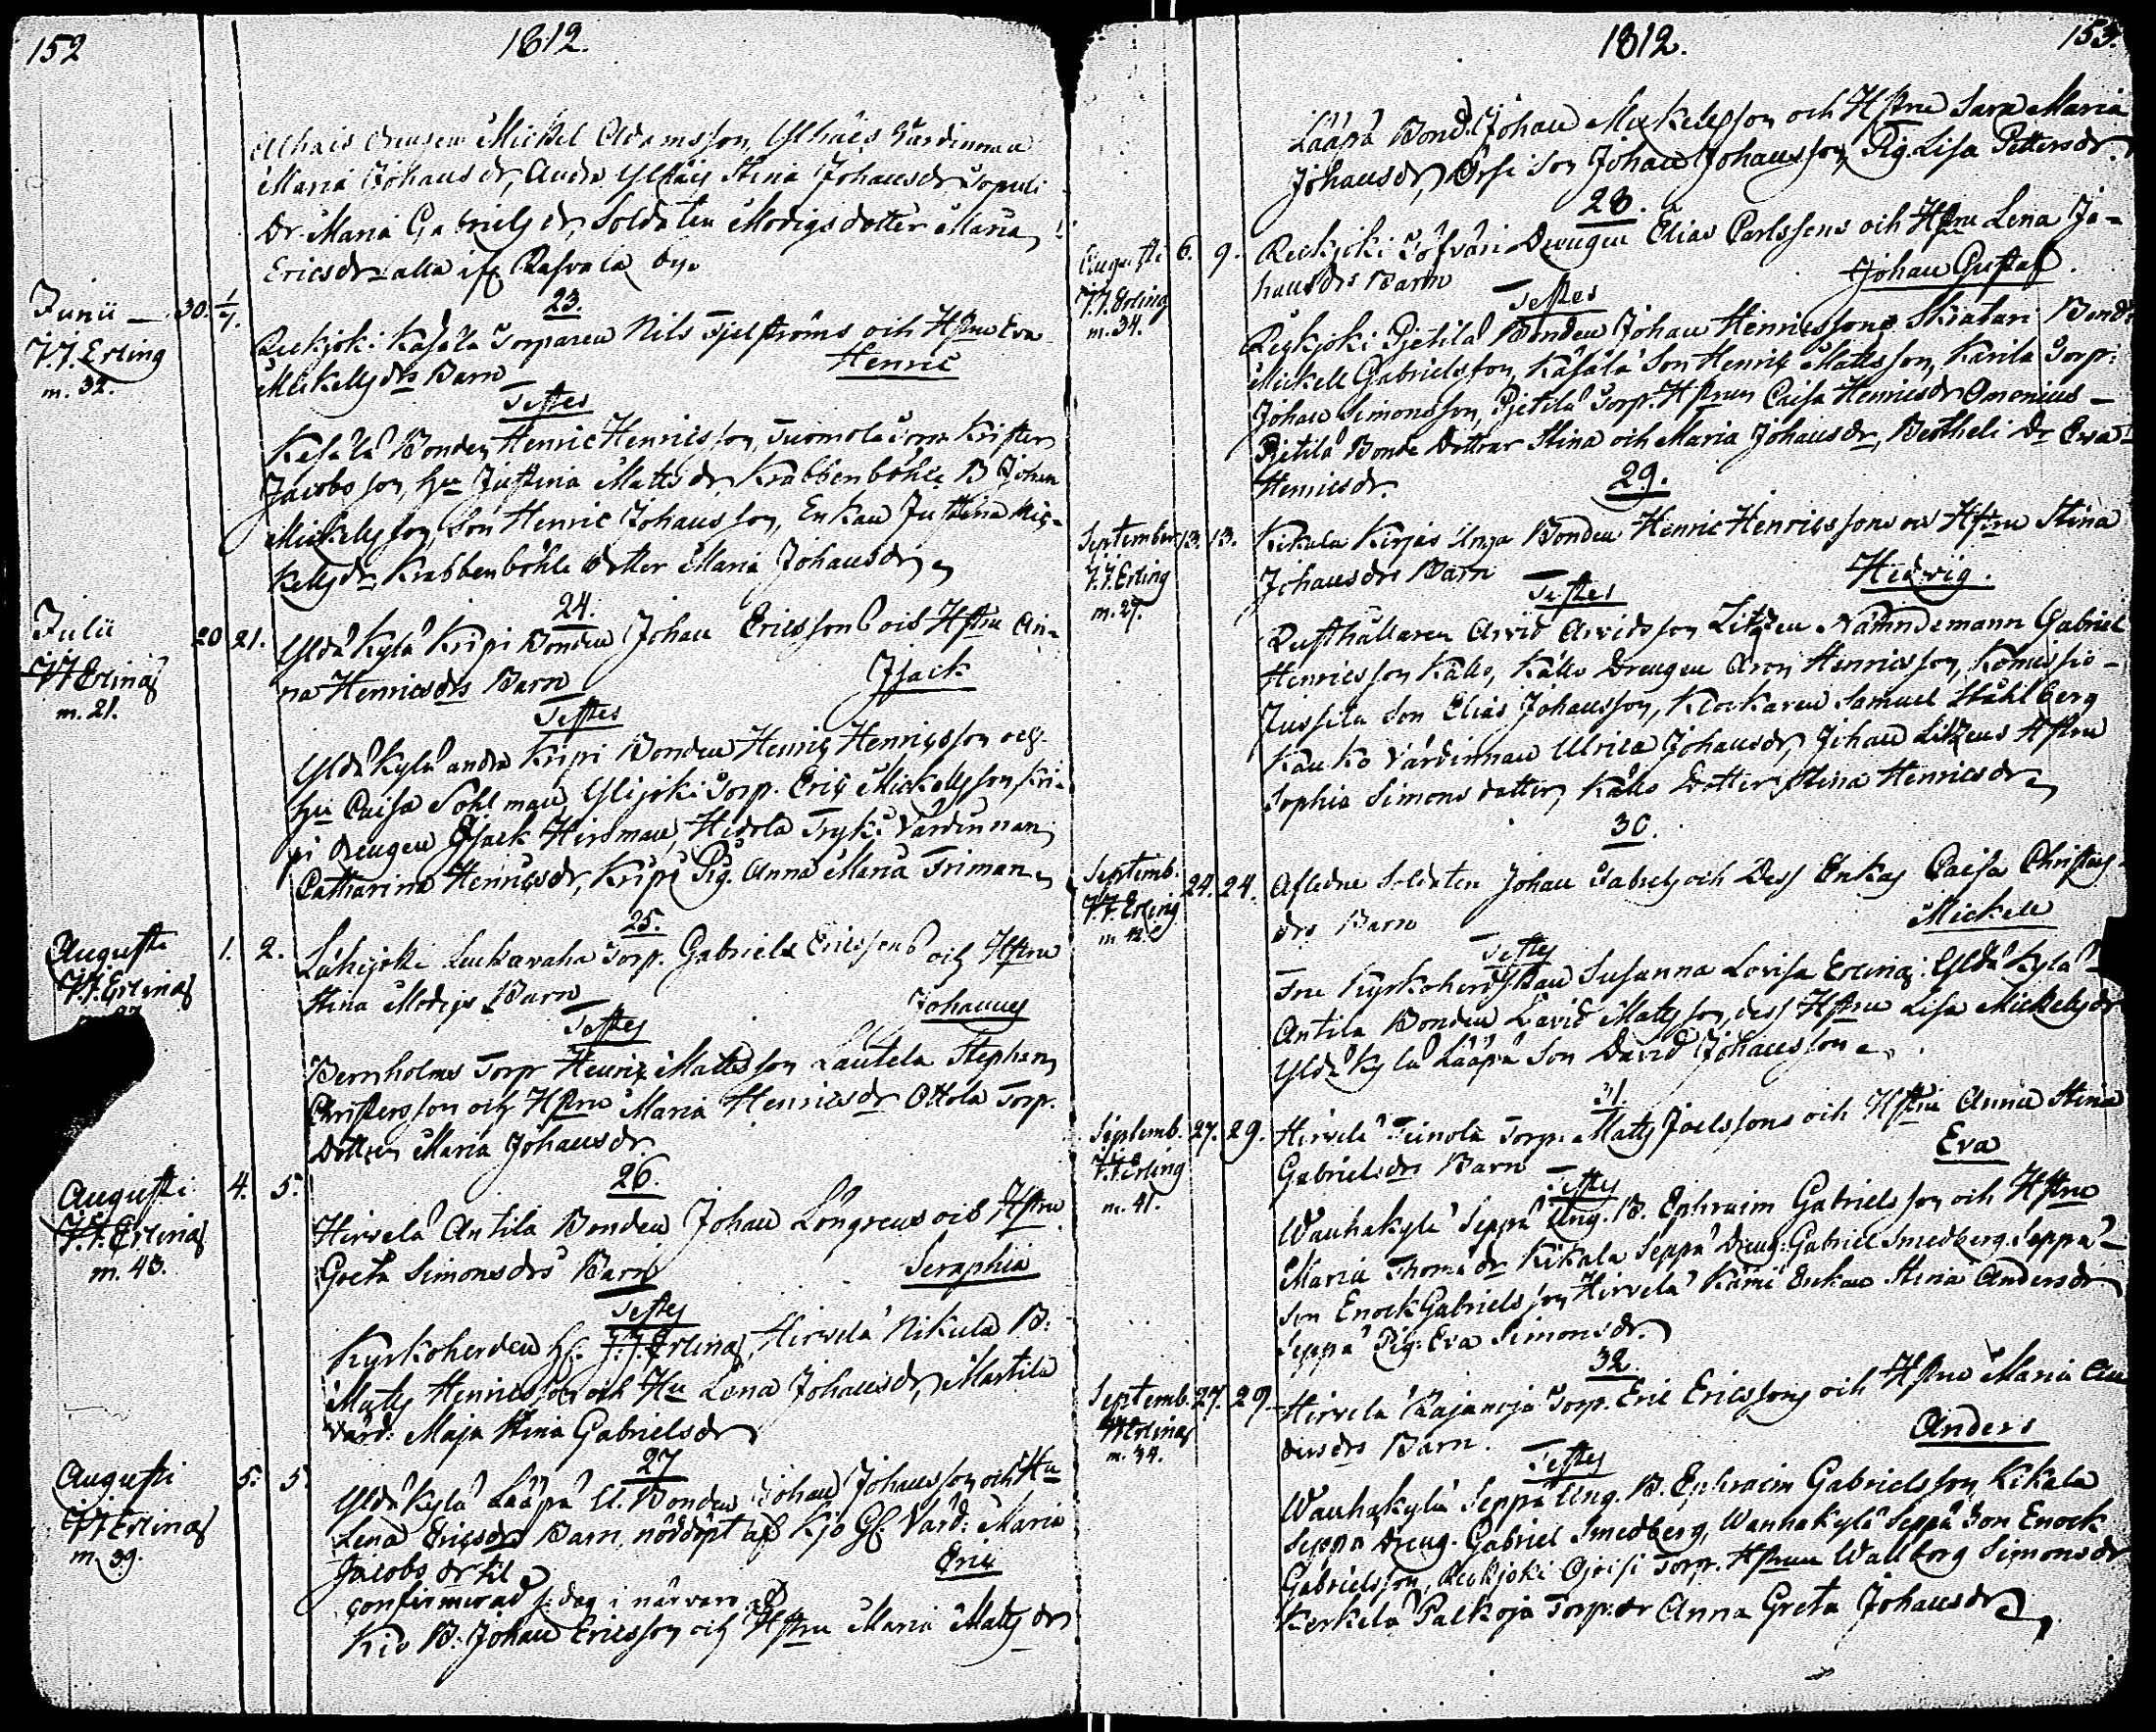 152
1812.
Drengen Mickel Adamsson, Ylhäis Värdinnan
Maria Johansdr, Andra Ylhäis Stina Johansdr
Dr Maria Gabrielsdr, Soldaten Modigs dotter Maria
Ericsdr alla ifr. Rasvala by.
23.
Junii 30. 1/7.
J.J. Erling
m. 32.
Reckjoki Käsälä Torparen Nils Fjelströms och Hstru Eva
Mickelsdrs Barn
Henric
Testes
Käsälä Bonden Henric Henricsson, Tuomola Krister
Jacobsson, Hu Justina Mattsdr, Krabbenböhle B Johan
Mickelsson, Son Henric Johansson, Enkan Justina Mic-
kelsdr Krabbenböhle dotter Maria Johansdr,
24.
Julii 20 21.
J.J. Erling
m. 21.
Yldäkylä Kripi Bonden Johan Ericssons och Hstru An-
na Henricsdrs Barn
Isack
Testes
Yldäkylä andra Kripi Bonden Henric Henricsson och
Hu Caisa Sohlman, Ylijoki Torp. Eric Mickelsson, Kri-
pi drengen Isack Hirsman, Hidola Tryki Värdinnan
Catharina Henricsdr, Kripi Pig. Anna Maria Friman
25.
Augusti 1. 2.
J.J. Erling
Lähijoki Torp. Gabriels Ericssons och Hstru
Stina Modigs Barn
Johannes
Testes
Bernholms Torp Henric Mattsson Lautela Stephan
Christersson och Hstru Maria Henricsdr Ottola Torp.
Dottren Maria Johansdr.
26.
Augusti 4. 5.
J.J. Erling
m. 43.
Hirvelä Antila Bonden Johan Löngrens och Hstru
Greta Simonsdrs Barn
Seraphia
Testes
Kyrkoherden H. J.J. Erling, Hirvelä Nikula B:
Matts Henricsson och Hu Lena Johansdr, Martila
Värd: Maja Stina Gabrielsdr
27
Augusti 5. 5
J.J. Erling
m. 39.
Yldäkylä Lääpä U. Bonden Johan Johansson och Hu
Lena Ericsdrs Barn, nöddöpt af Kjo Gl. Värd: Maria
Jacobsdr til
Eric
confirmerad s. dag i närvaro af
Kio B. Johan Ericsson och Hstru Maria Mattsdr
1812.
153.
Lääpä Bond. Johan Mickelsson och Hstru Sara Maria
Johansdr, Son Johan Johansson, Pig. Lisa Pettersdr.
28.
Augusti 6. 9.
J.J. Erling
m. 34.
Reckjoki Löfväri Drengen Elias Carlssons och Hstru Lena Jo-
hansdrs Barn
Johan Gustaf.
Testes
Reckjoki Pjetilä Bonden Johan Henricsson, Skiatari Bond
Mickell Gabrielsson, Käsälä Son Henric Mattsson, Karila Torp:
Johan Simonsson, Pjetilä Torp. Hstrun Caisa Henricsdr Omenius
Pjetilä Bonde Dottrar Stina och Maria Johansdr, Bertheli Dr Eva
Henricsdr.
29.
September 13. 13.
J.J. Erling
m. 27.
Kikala Kerjas Unga Bonden Henric Henricssons och Hstru Stina
Johansdrs Barn
Hedwig.
Testes
Rusthållaren Arvid Arvidsson Litzen Nämndemann Gabriel
Henricsson Källo, Källo Drengen Aron Henricsson,
Jussila Son Elias Johansson, Klockaren Samuel Ståhlberg
Kauko Värdinnan Ulrica Johansdr, Johan Litzens Hstru
Sophia Simonsdotter, Källo Dotter Stina Henricsdr
30.
Septemb. 24. 24.
J.J. Erling
m. 42.
Afledne Soldaten Johan Gabriels och Dess Enkas Caisa Christers-
drs Barn
Mickell
Testes
Fru Kyrkoherdskan Susanna Lovisa Erling. Yldäkylä
Antila Bonden David Mattsson, dess Hstru Lisa Mickelsdr
Yldäkylä Lääpä Son David Johansson.
31.
Septemb. 27. 29.
J.J. Erling
m. 41.
Hirvelä Teinola Torp. Matts Joelssons och Hstru Anna Stina
Gabrielsdrs Barn
Eva
Testes
Wanhakylä Seppä Ung. B. Ephraim Gabrielsson och Hstru
Maria Thomädr Kikala Seppä Dreng. Gabriel Smedberg. Seppä
Son Enock Gabrielsson, Hirvelä Kämi Enkan Stina Andersdr
Seppä Pig. Eva Simonsdr.
32.
Septemb. 27. 29.
J.J. Erling
m. 34.
Hirvelä Rajanoja Torp. Eric Ericssons och Hstru Maria An
dersdrs Barn.
Anders
Testes
Wanhakylä Seppä Ung. B. Ephraim Gabrielsson, Kikala
Seppä Dreng. Gabriel Smedberg, Wanhakylä Seppä Son Enock
Gabrielsson, Reckjoki Torp. Hstrun Walborg Simonsdr
Kerkelä Palkoja Torp: dr Anna Greta Johansdr